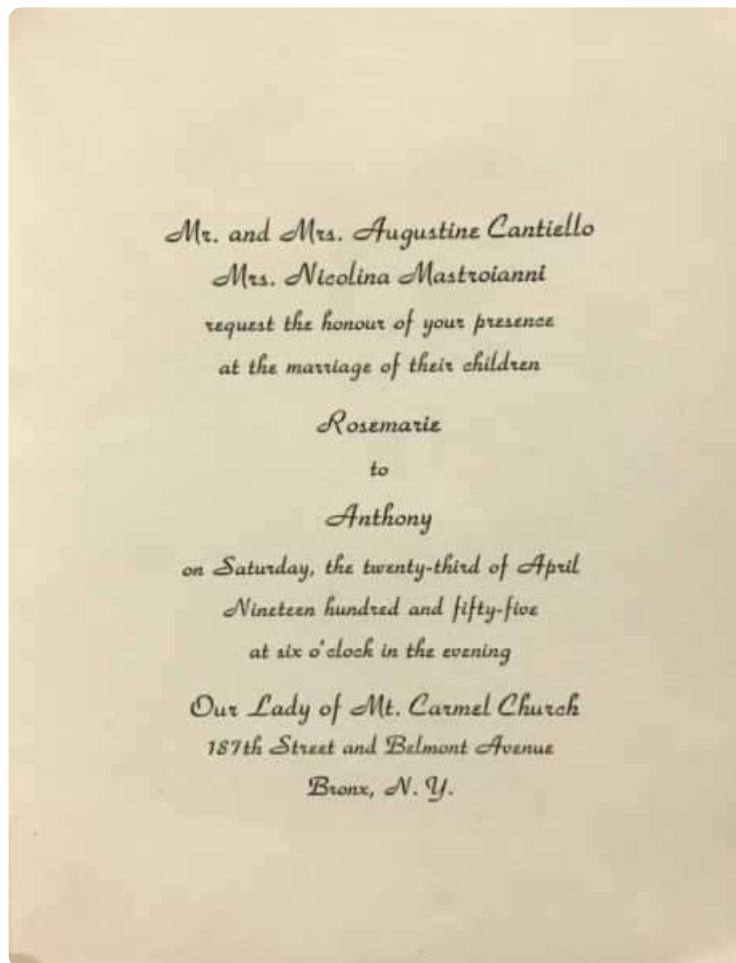 Mr. and Mrs. Augustine Cantiello
Mrs. Nicolina Mastroianni
request the honour of your presence
at the marriage of their children
Rosemarie
to
Anthony
on Saturday, the twenty-third of April
Nineteen hundred and fifty-five
at six o'clock in the evening
Our Lady of Mt. Carmel Church
187th Street and Belmont Avenue
Bronx, N. Y.